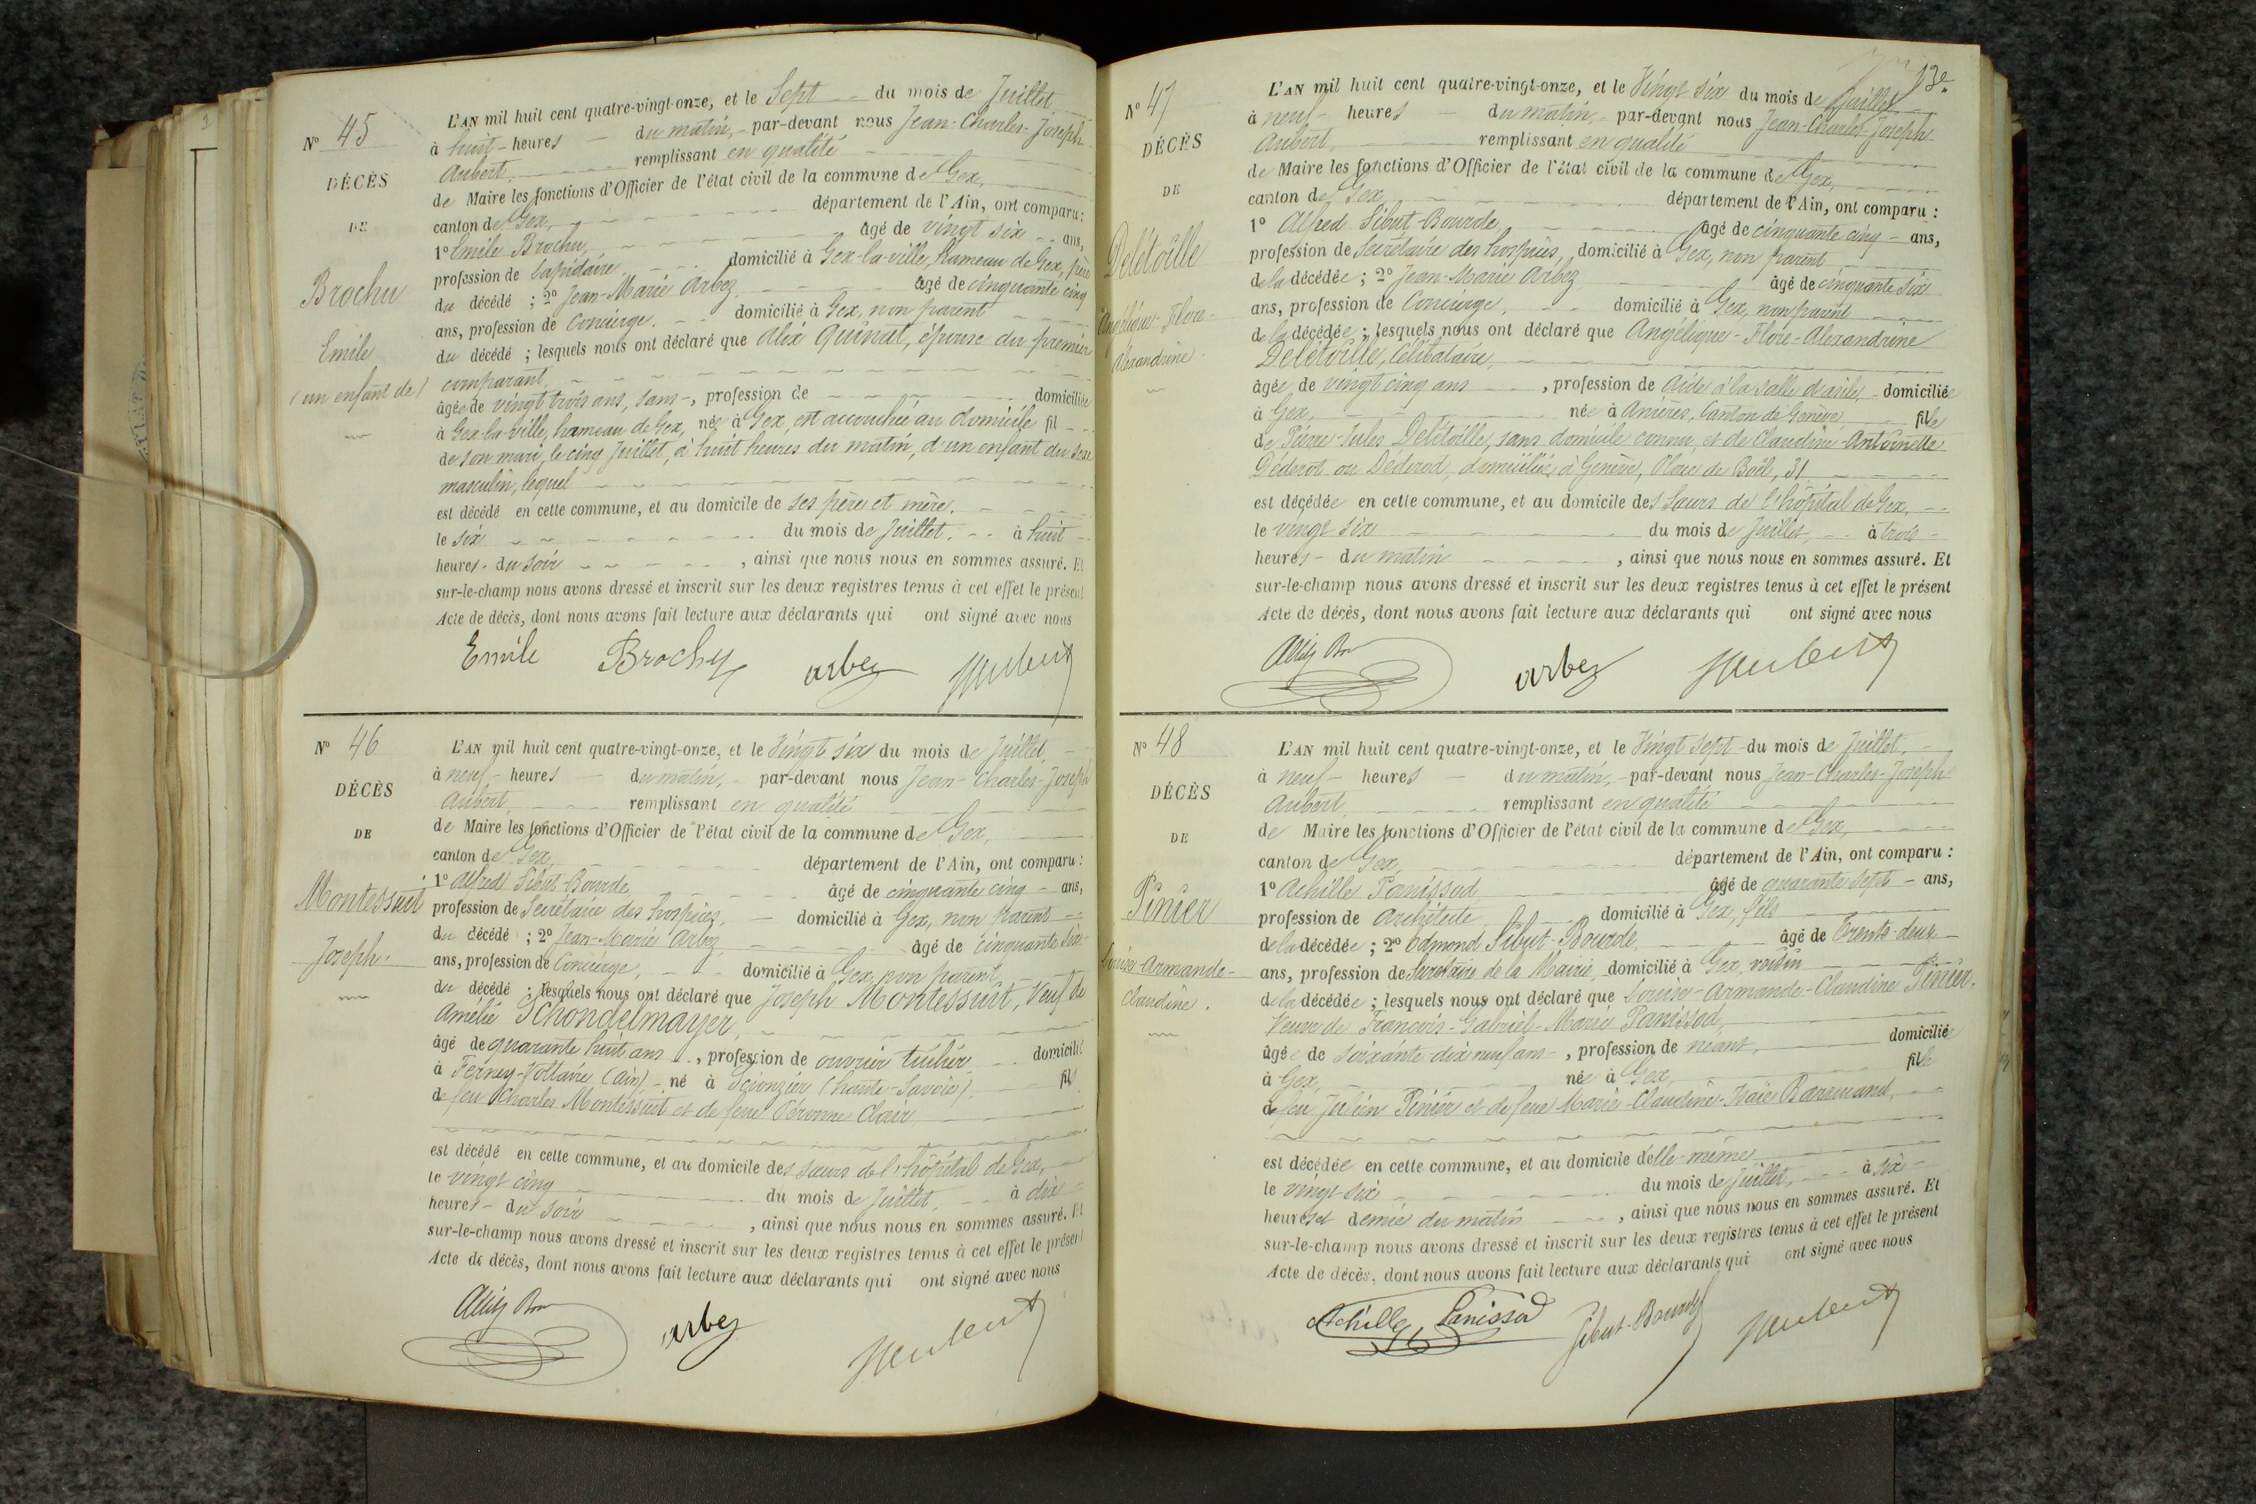 N° 45
DÉCÈS
DE
Brochu
Emile
(un enfant de)
L'AN mil huit cent quatre-vingt-onze, et le Sept du mois de Juillet
à huit heures du matin, par-devant nous Jean-Charles-Joseph
Aubert remplissant en qualité
de Maire les fonctions d'Officier de l'état civil de la commune de Gex,
canton de Gex, département de l'Ain, ont comparu :
1° Emile Brochu, âgé de vingt six ans,
profession de Lapidaire domicilié à Gex-la-ville, hameau de Gex, père
du décédé ; 2° Jean-Marie Arbez âgé de cinquante cinq
ans, profession de Concierge. domicilié à Gex, non parent
du décédé ; lesquels nous ont déclaré que Alix Quinat, épouse du premier
comparant,
âgée de vingt trois ans, sans, profession de domiciliée
à Gex-la-ville, hameau de Gex, née à Gex, est accouchée au domicile fil
de son mari, le cinq Juillet, à huit heures du matin, d'un enfant du sexe
masculin, lequel
est décédé en cette commune, et au domicile de ses père et mère.
le six du mois de Juillet. à huit
heures du soir, ainsi que nous nous en sommes assuré. Et
sur-le-champ nous avons dressé et inscrit sur les deux registres tenus à cet effet le présent
Acte de décès, dont nous avons fait lecture aux déclarants qui ont signé avec nous
Emile Brochu arbez Aubert
N° 46
DÉCÈS
DE
Montessuit
Joseph.
L'AN mil huit cent quatre-vingt-onze, et le Vingt six du mois de Juillet,
à neuf heures du matin, par-devant nous Jean-Charles-Joseph
Aubert remplissant en qualité
de Maire les fonctions d'Officier de l'état civil de la commune de Gex,
canton de Gex, département de l'Ain, ont comparu :
1° Alfred Sibut-Bourde âgé de cinquante cinq ans,
profession de Secrétaire des hospices, domicilié à Gex, non parent
du décédé ; 2° Jean-Marie Arbez âgé de cinquante six
ans, profession de Concierge, domicilié à Gex, non parent
du décédé ; lesquels nous ont déclaré que Joseph Montessuit, Veuf de
Amélie Schondelmayer,
âgé de quarante huit ans, profession de ouvrier tuilier domicilié
à Ferney-Voltaire (Ain) né à Scionzier (haute-Savoie). fils
de feu Charles Montessuit et de feue Péronne Clair
est décédé en cette commune, et au domicile des sœurs de l'hôpital de Gex,
le vingt cinq du mois de Juillet, à dix
heures du soir, ainsi que nous nous en sommes assuré. Et
sur-le-champ nous avons dressé et inscrit sur les deux registres tenus à cet effet le présent
Acte de décès, dont nous avons fait lecture aux déclarants qui ont signé avec nous
arbez Aubert
13e
N° 47
DÉCÈS
DE
Delétoille
Angélique-Flore-
Alexandrine.
L'AN mil huit cent quatre-vingt-onze, et le Vingt six du mois de Juillet
à neuf heures du matin, par-devant nous Jean-Charles-Joseph
Aubert, remplissant en qualité
de Maire les fonctions d'Officier de l'état civil de la commune de Gex,
canton de Gex, département de l'Ain, ont comparu :
1° Alfred Sibut-Bourde, âgé de cinquante cinq ans,
profession de Secrétaire des hospices, domicilié à Gex, non parent
de la décédée ; 2° Jean-Marie Arbez âgé de cinquante six
ans, profession de Concierge. domicilié à Gex, non parent
de la décédée ; lesquels nous ont déclaré que Angélique-Flore-Alexandrine
Delétoille, Célibataire,
âgée de vingt cinq ans, profession de Aide à la salle d'asile, domiciliée
à Gex, née à Anières, Canton de Genève, fille
de Pierre-Jules Delétoille, sans domicile connu, et de Claudine Antoinette
Déderot ou Déderod, domiciliée à Genève, Place de Boël, 31
est décédée en cette commune, et au domicile des Sœurs de l'hôpital de Gex,
le vingt six du mois de Juillet, à trois
heures du matin, ainsi que nous nous en sommes assuré. Et
sur-le-champ nous avons dressé et inscrit sur les deux registres tenus à cet effet le présent
Acte de décès, dont nous avons fait lecture aux déclarants qui ont signé avec nous
arbez Aubert
N° 48
DÉCÈS
DE
Pinier
Louise-Armande-
Claudine.
L'AN mil huit cent quatre-vingt-onze, et le Vingt sept du mois de Juillet.
à neuf heures du matin, par-devant nous Jean-Charles-Joseph
Aubert remplissant en qualité
de Maire les fonctions d'Officier de l'état civil de la commune de Gex,
canton de Gex, département de l'Ain, ont comparu :
1° Achille Panissod âgé de quarante sept ans,
profession de Architecte domicilié à Gex, fils
de la décédée ; 2° Edmond Sibut-Bourde, âgé de Trente-deux
ans, profession de Secrétaire de la Mairie domicilié à Gex, voisin
de la décédée ; lesquels nous ont déclaré que Louise-Armande-Claudine Pinier,
Veuve de François-Gabriel-Marie Panissod,
âgée de soixante dix neuf ans, profession de néant, domiciliée
à Gex, née à Gex, fille
de feu Julien Pinier et de feue Marie-Claudine-Isaïe
est décédée en cette commune, et au domicile d'elle-même
le vingt six du mois de Juillet, à six
heures et demie du matin, ainsi que nous nous en sommes assuré. Et
sur-le-champ nous avons dressé et inscrit sur les deux registres tenus à cet effet le présent
Acte de décès, dont nous avons fait lecture aux déclarants qui ont signé avec nous
Achille Panissod Sibut-Bourde Aubert